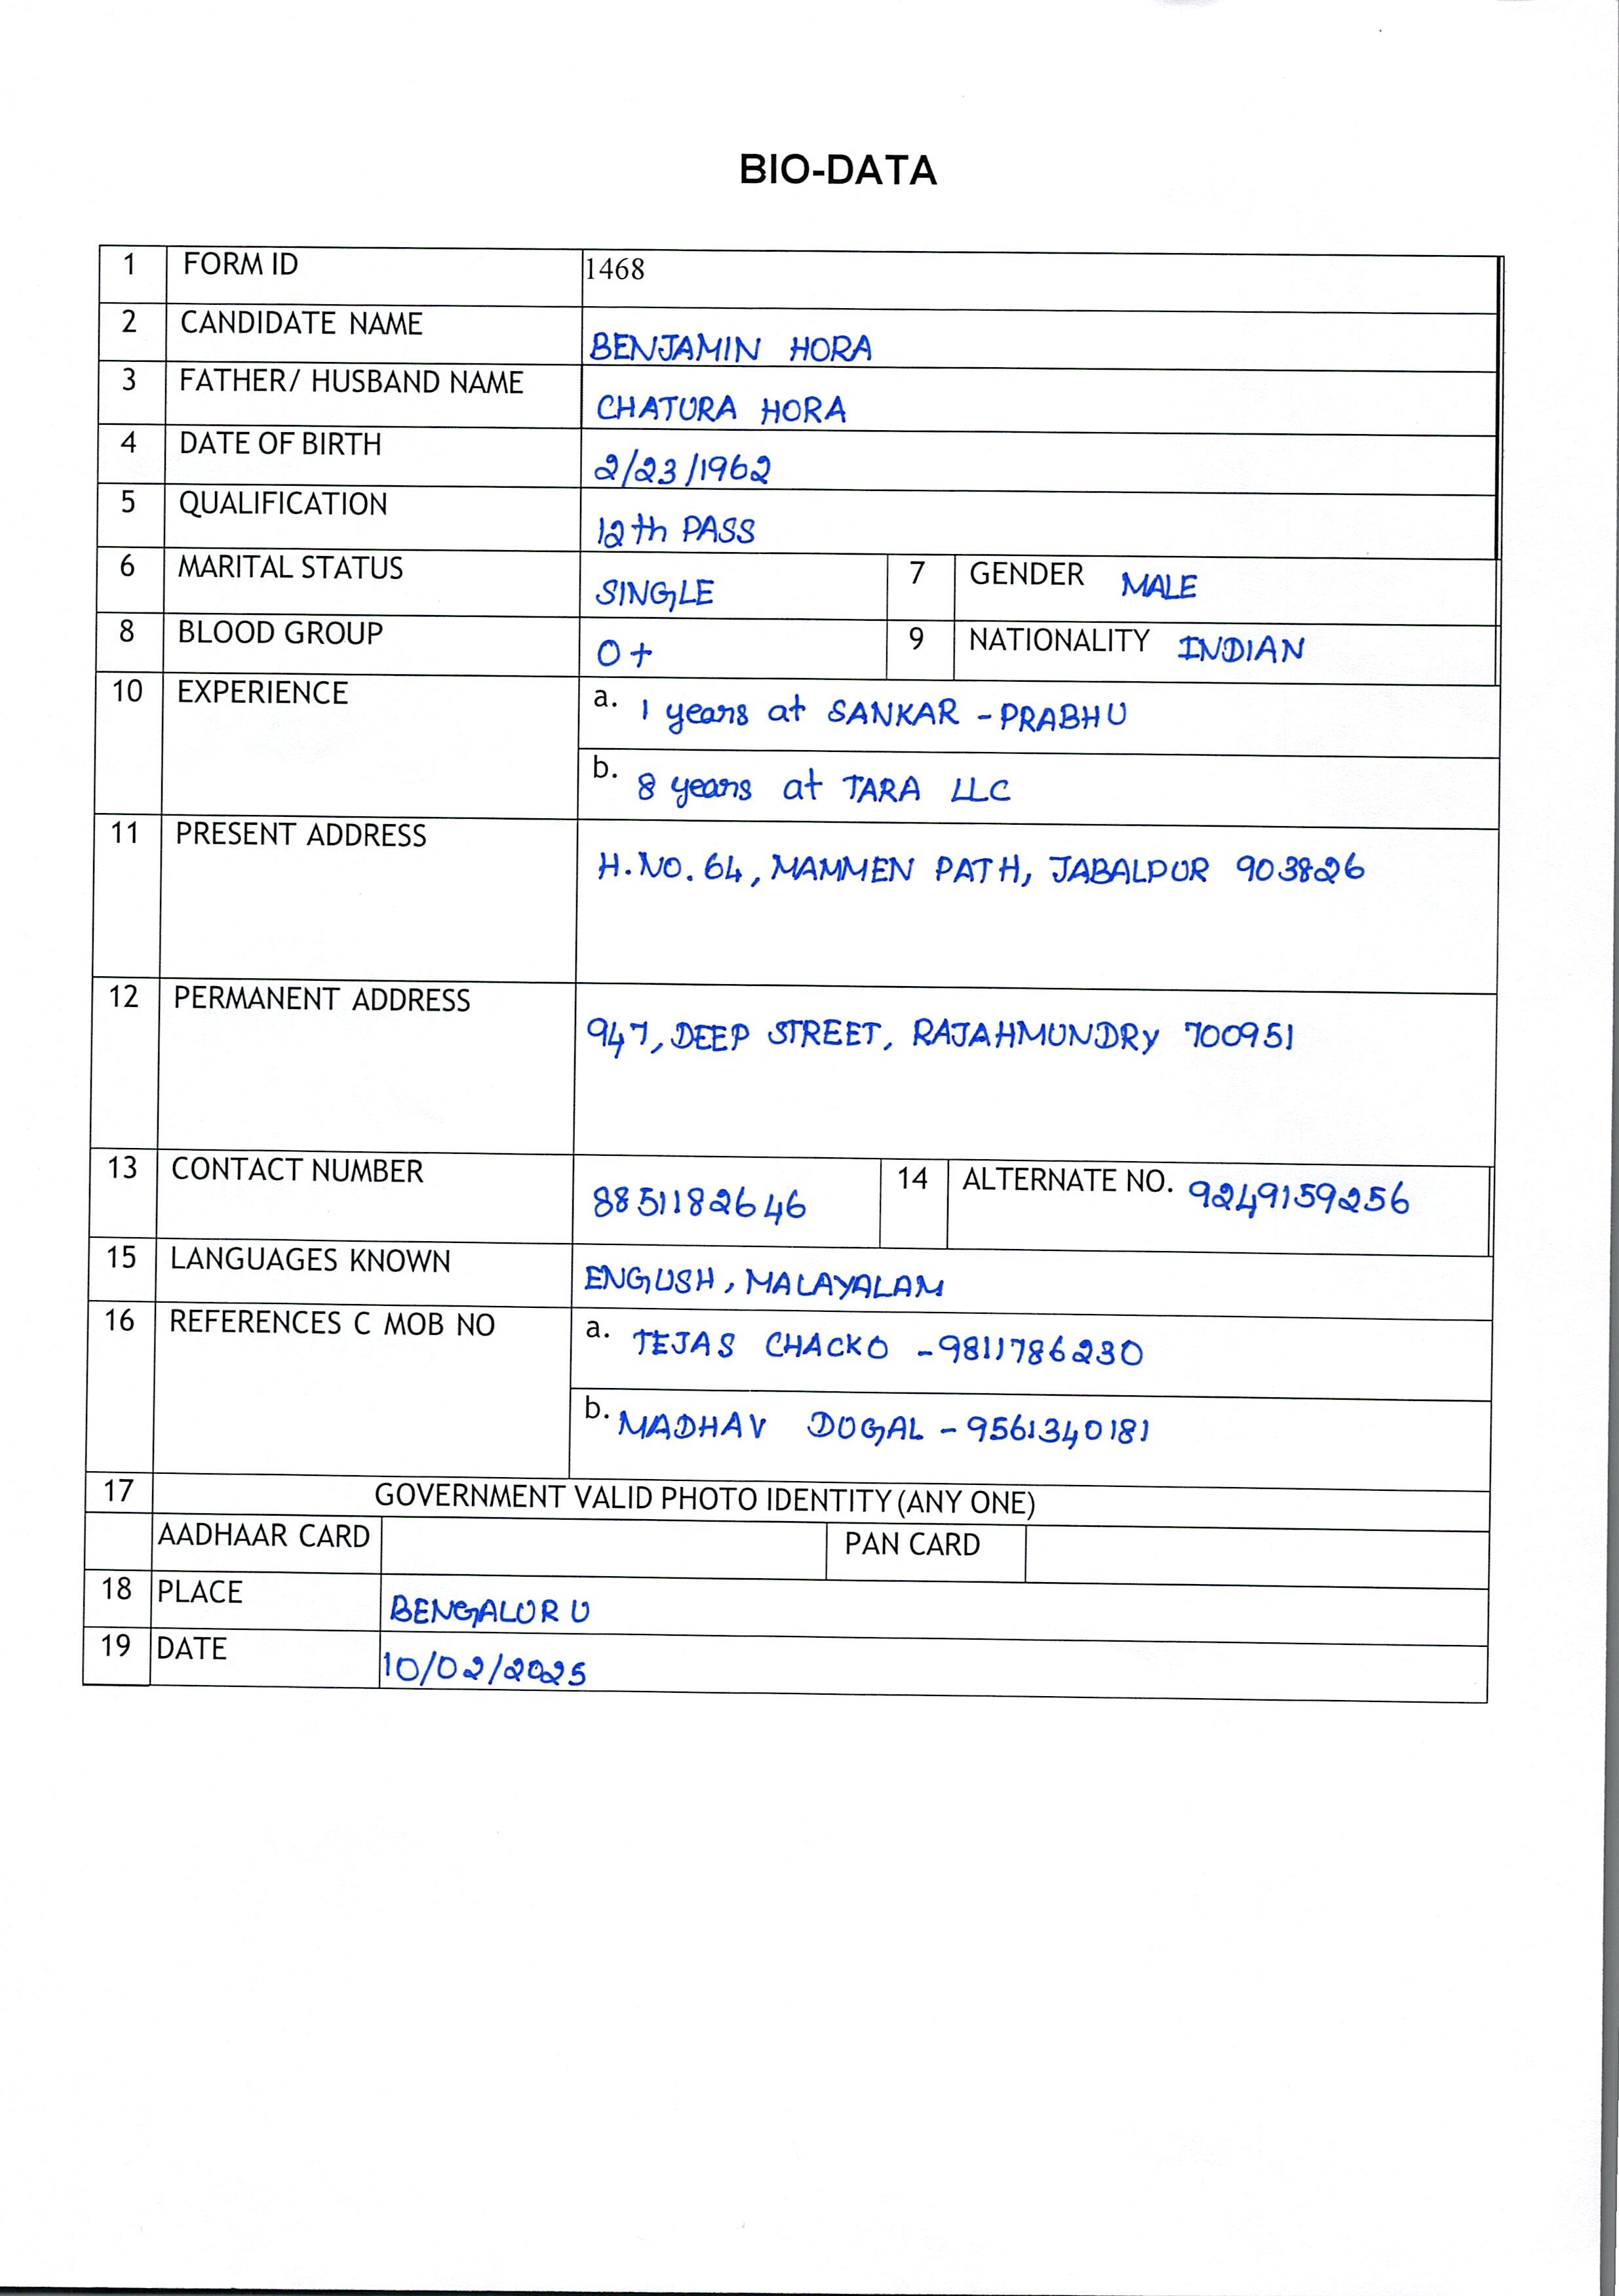 BIO-DATA
1 FORM ID 1468
2 CANDIDATE NAME BENJAMIN HORA
3 FATHER/ HUSBAND NAME CHATURA HORA
4 DATE OF BIRTH 2/23/1962
5 QUALIFICATION 12th PASS
6 MARITAL STATUS SINGLE 7 GENDER MALE
8 BLOOD GROUP O+ 9 NATIONALITY INDIAN
10 EXPERIENCE a. 1 years at SANKAR - PRABHU
b. 8 years at TARA LLC
11 PRESENT ADDRESS H.NO. 64, MAMMEN PATH, JABALPUR 903826
12 PERMANENT ADDRESS 947, DEEP STREET, RAJAHMUNDRY 700951
13 CONTACT NUMBER 8851182646 14 ALTERNATE NO. 9249159256
15 LANGUAGES KNOWN ENGLISH, MALAYALAM
16 REFERENCES C MOB NO a. TEJAS CHACKO - 9811786230
b. MADHAV DUGAL - 9561340181
17 GOVERNMENT VALID PHOTO IDENTITY (ANY ONE)
AADHAAR CARD PAN CARD
18 PLACE BENGALURU
19 DATE 10/02/2025